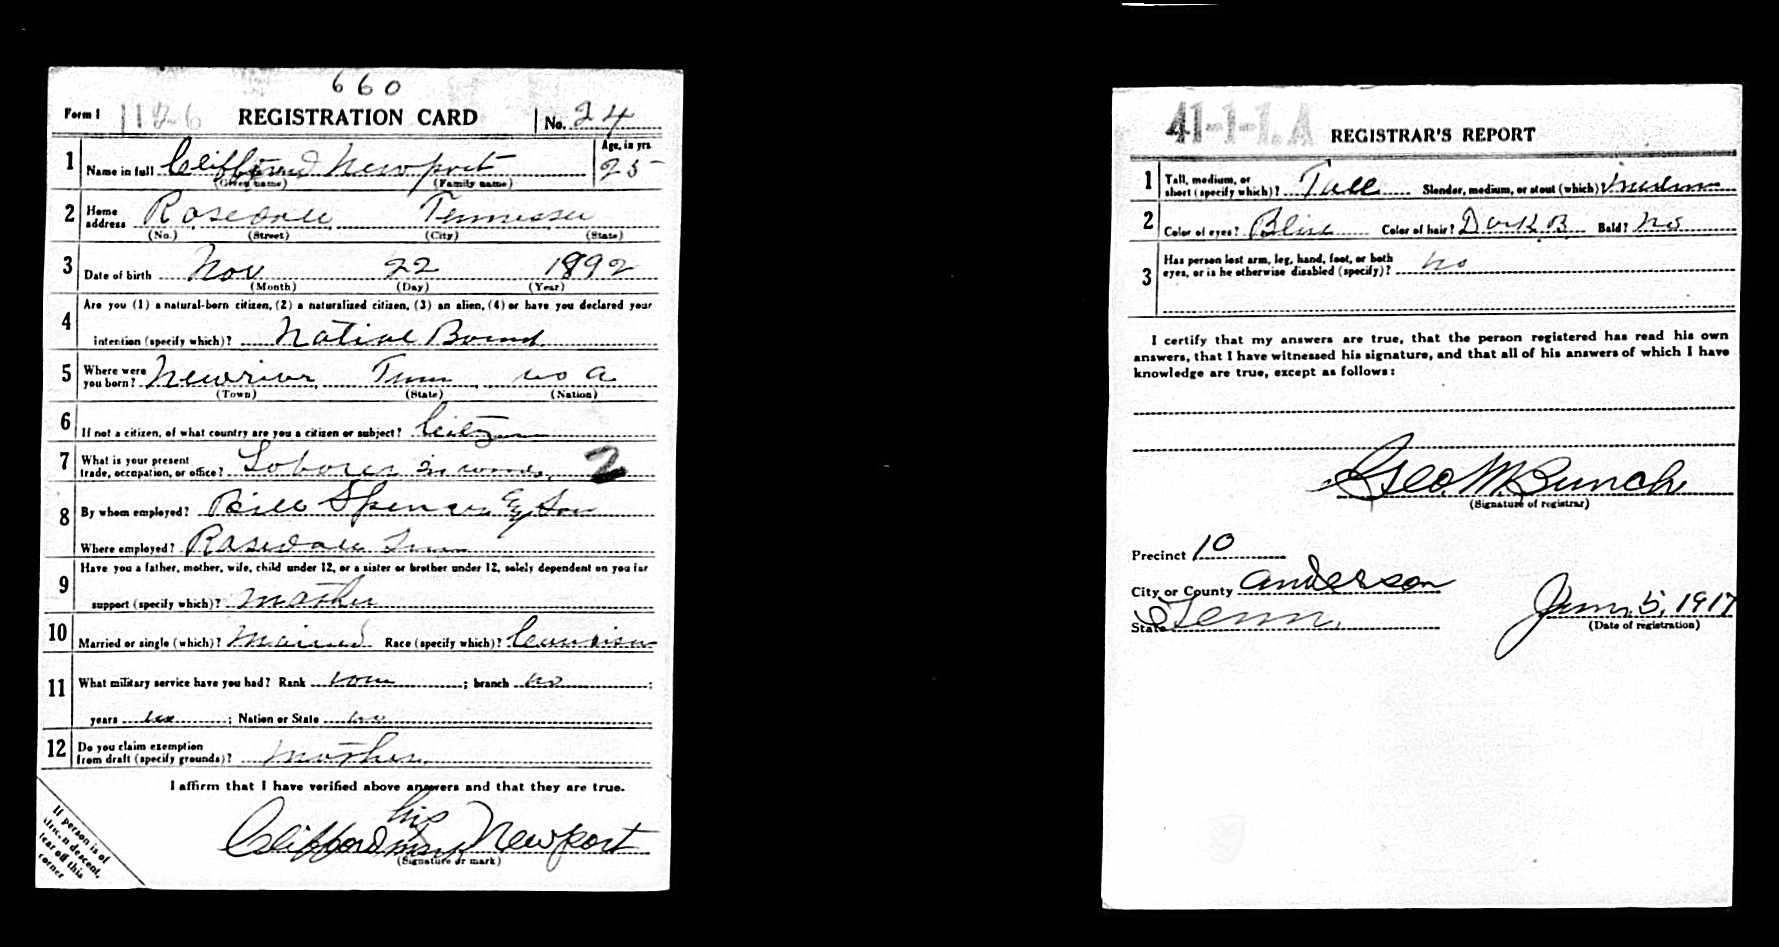 660
Form 1 REGISTRATION CARD No. 24
1 Name in full Clifford Newport Age, in yrs. 25
(Given name) (Family name)
2 Home address Rosedale Tennessee
(No.) (Street) (City) (State)
3 Date of birth Nov 22 1892
(Month) (Day) (Year)
4 Are you (1) a natural-born citizen, (2) a naturalized citizen, (3) an alien, (4) or have you declared your
intention (specify which)? Native Bornd
5 Where were you born? Newriver Tenn
(Town) (State) (Nation)
6 If not a citizen, of what country are you a citizen or subject? Citizen
7 What is your present trade, occupation, or office? Laborer in woods 2
8 By whom employed? Bill Spencer & Son
Where employed? Rosedale Tenn
9 Have you a father, mother, wife, child under 12, or a sister or brother under 12, solely dependent on you for
support (specify which)? Mother
10 Married or single (which)? Married Race (specify which)?
11 What military service have you had? Rank none ; branch no ;
years ; Nation or State no
12 Do you claim exemption from draft (specify grounds)? Mother
I affirm that I have verified above answers and that they are true.
his
Clifford mark Newport
(Signature or mark)
If person is of
African descent,
tear off this
corner
41-1-1.A REGISTRAR'S REPORT
1 Tall, medium, or short (specify which)? Tall Slender, medium, or stout (which)? Medium
2 Color of eyes? Blue Color of hair? Dark B. Bald? No
3 Has person lost arm, leg, hand, foot, or both eyes, or is he otherwise disabled (specify)? No
I certify that my answers are true, that the person registered has read his own
answers, that I have witnessed his signature, and that all of his answers of which I have
knowledge are true, except as follows:
Geo. M. Bunch
(Signature of registrar)
Precinct 10
City or County Anderson
State Tenn.
June 5, 1917
(Date of registration)